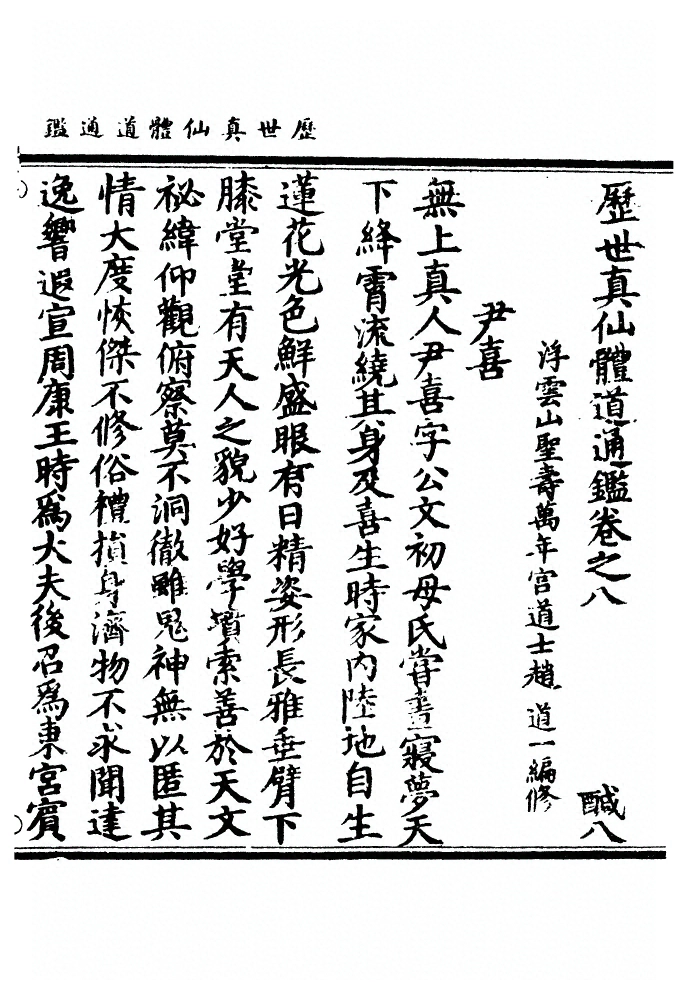 歷世真仙體道通鑑
歷世真仙體道通鑑卷之八 醎八
浮雲山聖壽萬年宮道士趙道一編修
尹喜
無上真人尹喜字公文初母氏嘗晝寢夢天
下絳霄流繞其身及喜生時家內陸地自生
蓮花光色鮮盛眼有日精姿形長雅垂臂下
膝堂堂有天人之貌少好學墳索善於天文
祕緯仰觀俯察莫不洞徹雖鬼神無以匿其
情大度恢傑不修俗禮損身濟物不求聞達
逸響遐宣周康王時為大夫後召為東宮賓